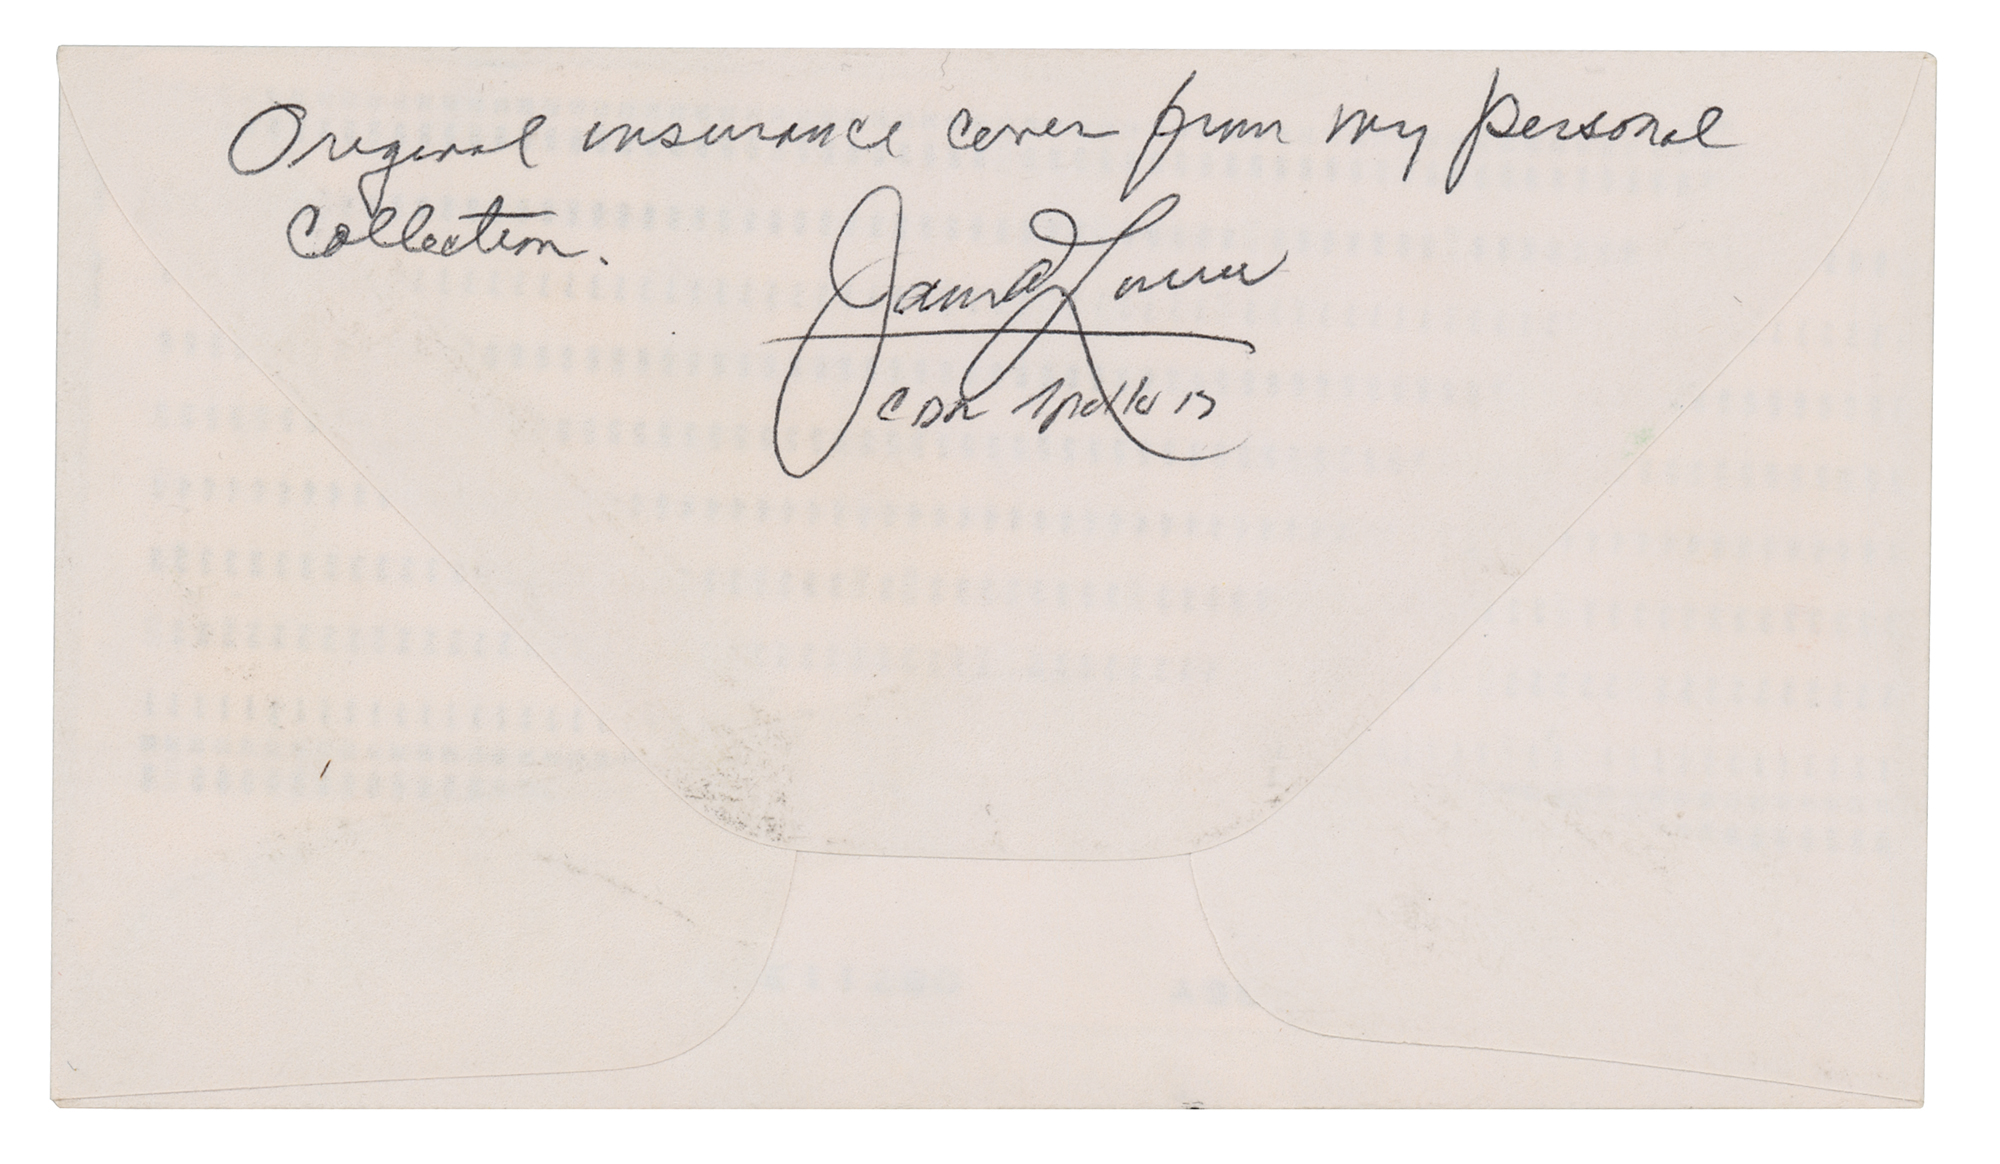 Original insurance cover from my personal
collection.
James Lovell
CDR Apollo 13